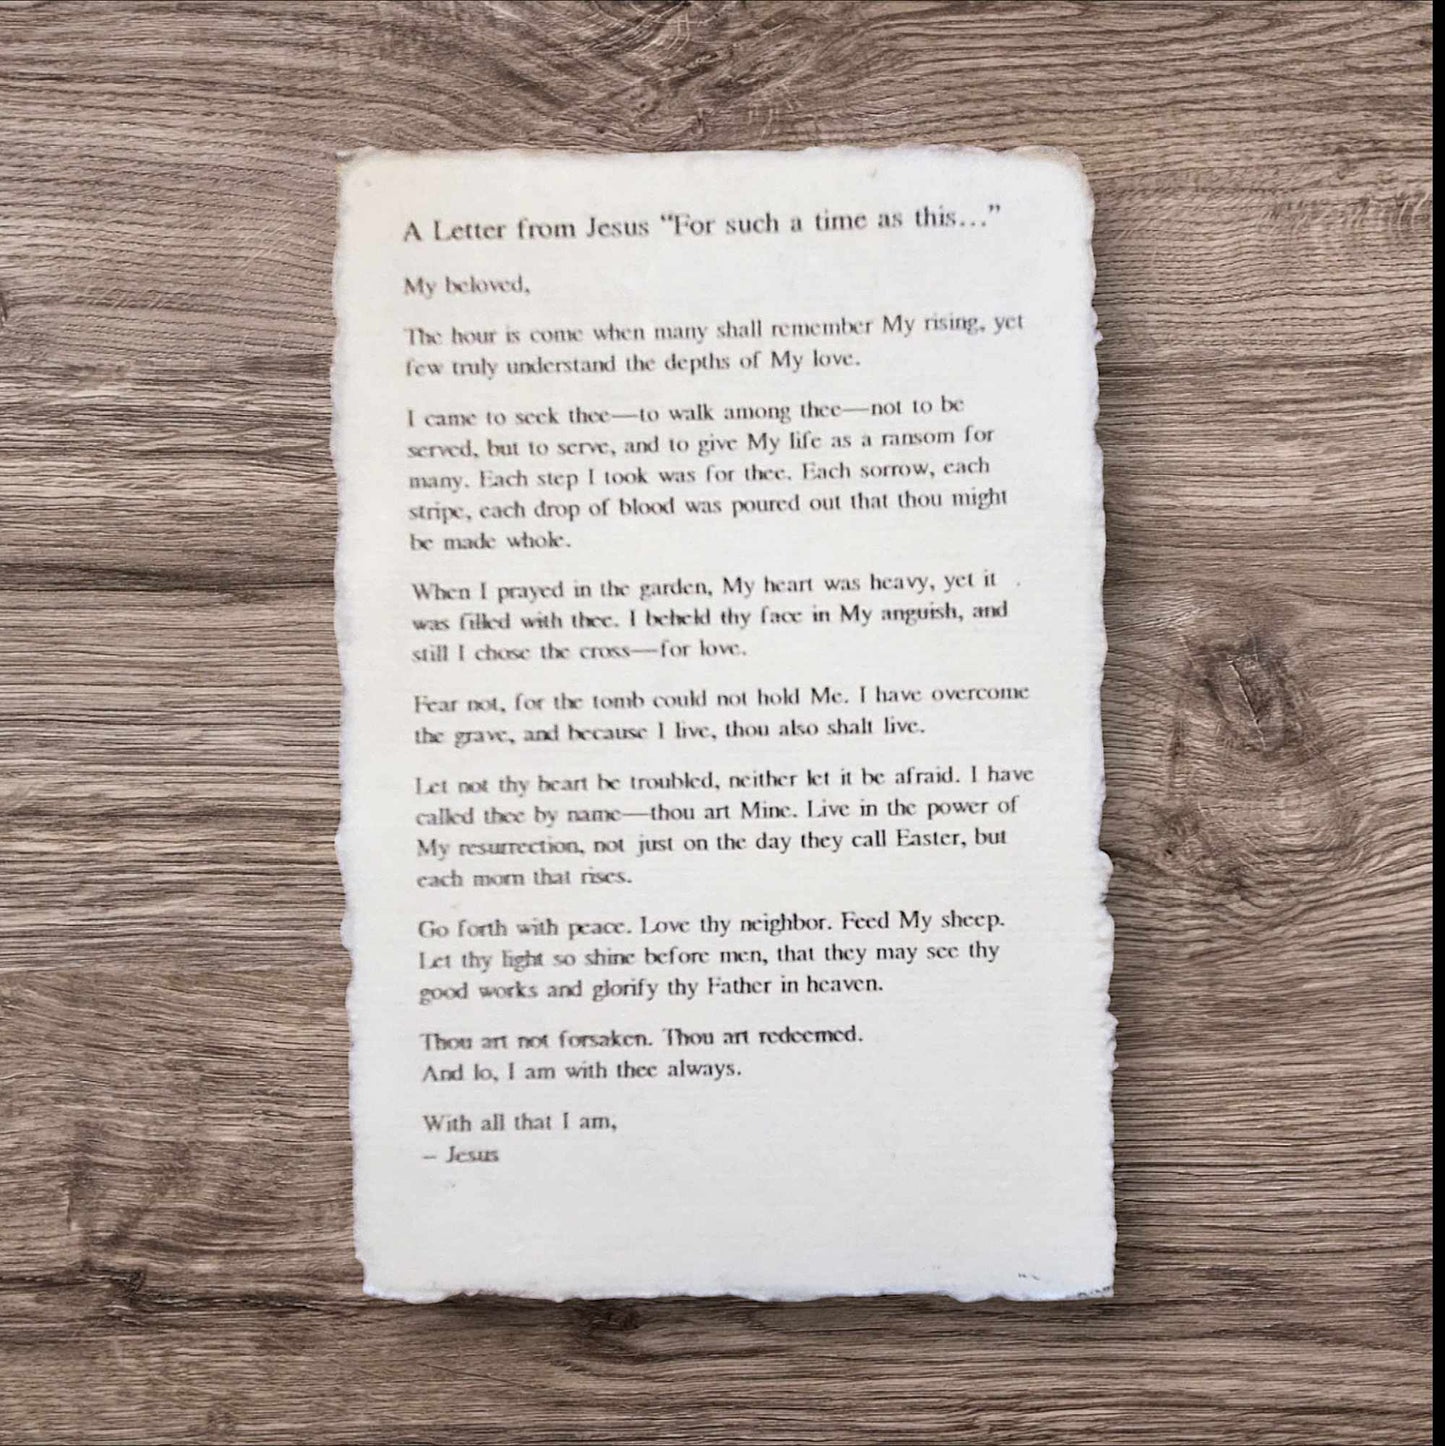 A Letter from Jesus “For such a time as this…”
My beloved,
The hour is come when many shall remember My rising, yet
few truly understand the depths of My love.
I came to seek thee—to walk among thee—not to be
served, but to serve, and to give My life as a ransom for
many. Each step I took was for thee. Each sorrow, each
stripe, each drop of blood was poured out that thou might
be made whole.
When I prayed in the garden, My heart was heavy, yet it
was filled with thee. I beheld thy face in My anguish, and
still I chose the cross—for love.
Fear not, for the tomb could not hold Me. I have overcome
the grave, and because I live, thou also shalt live.
Let not thy heart be troubled, neither let it be afraid. I have
called thee by name—thou art Mine. Live in the power of
My resurrection, not just on the day they call Easter, but
each morn that rises.
Go forth with peace. Love thy neighbor. Feed My sheep.
Let thy light so shine before men, that they may see thy
good works and glorify thy Father in heaven.
Thou art not forsaken. Thou art redeemed.
And lo, I am with thee always.
With all that I am,
– Jesus